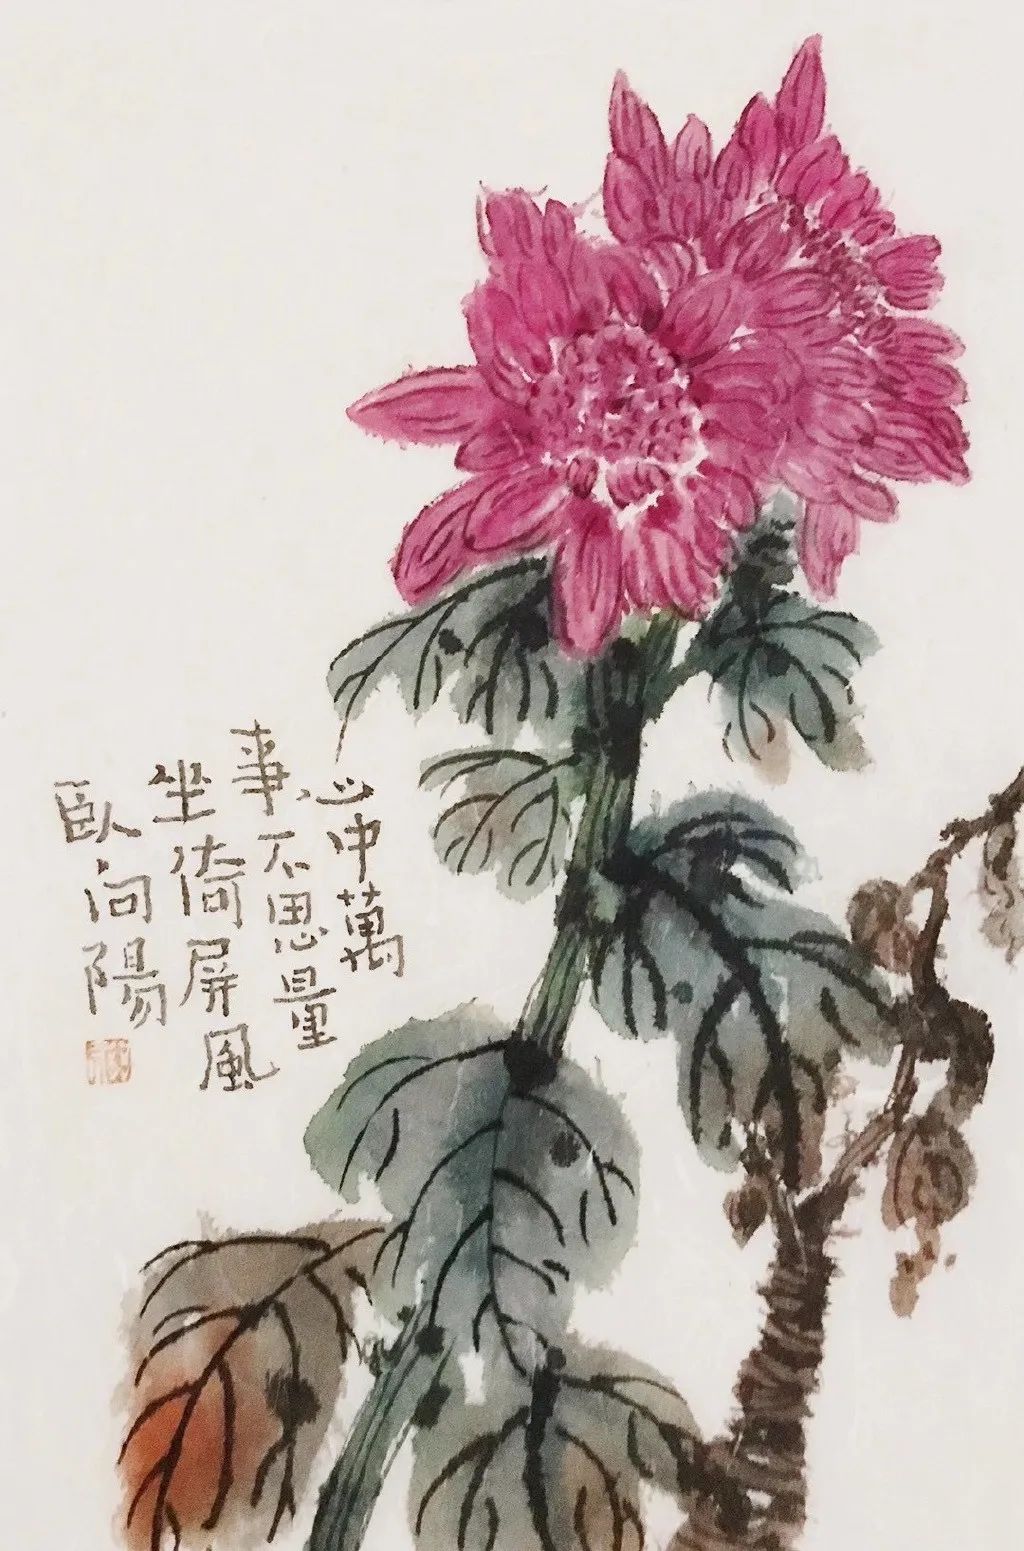 心中萬
事不思量
坐倚屏風
臥向陽